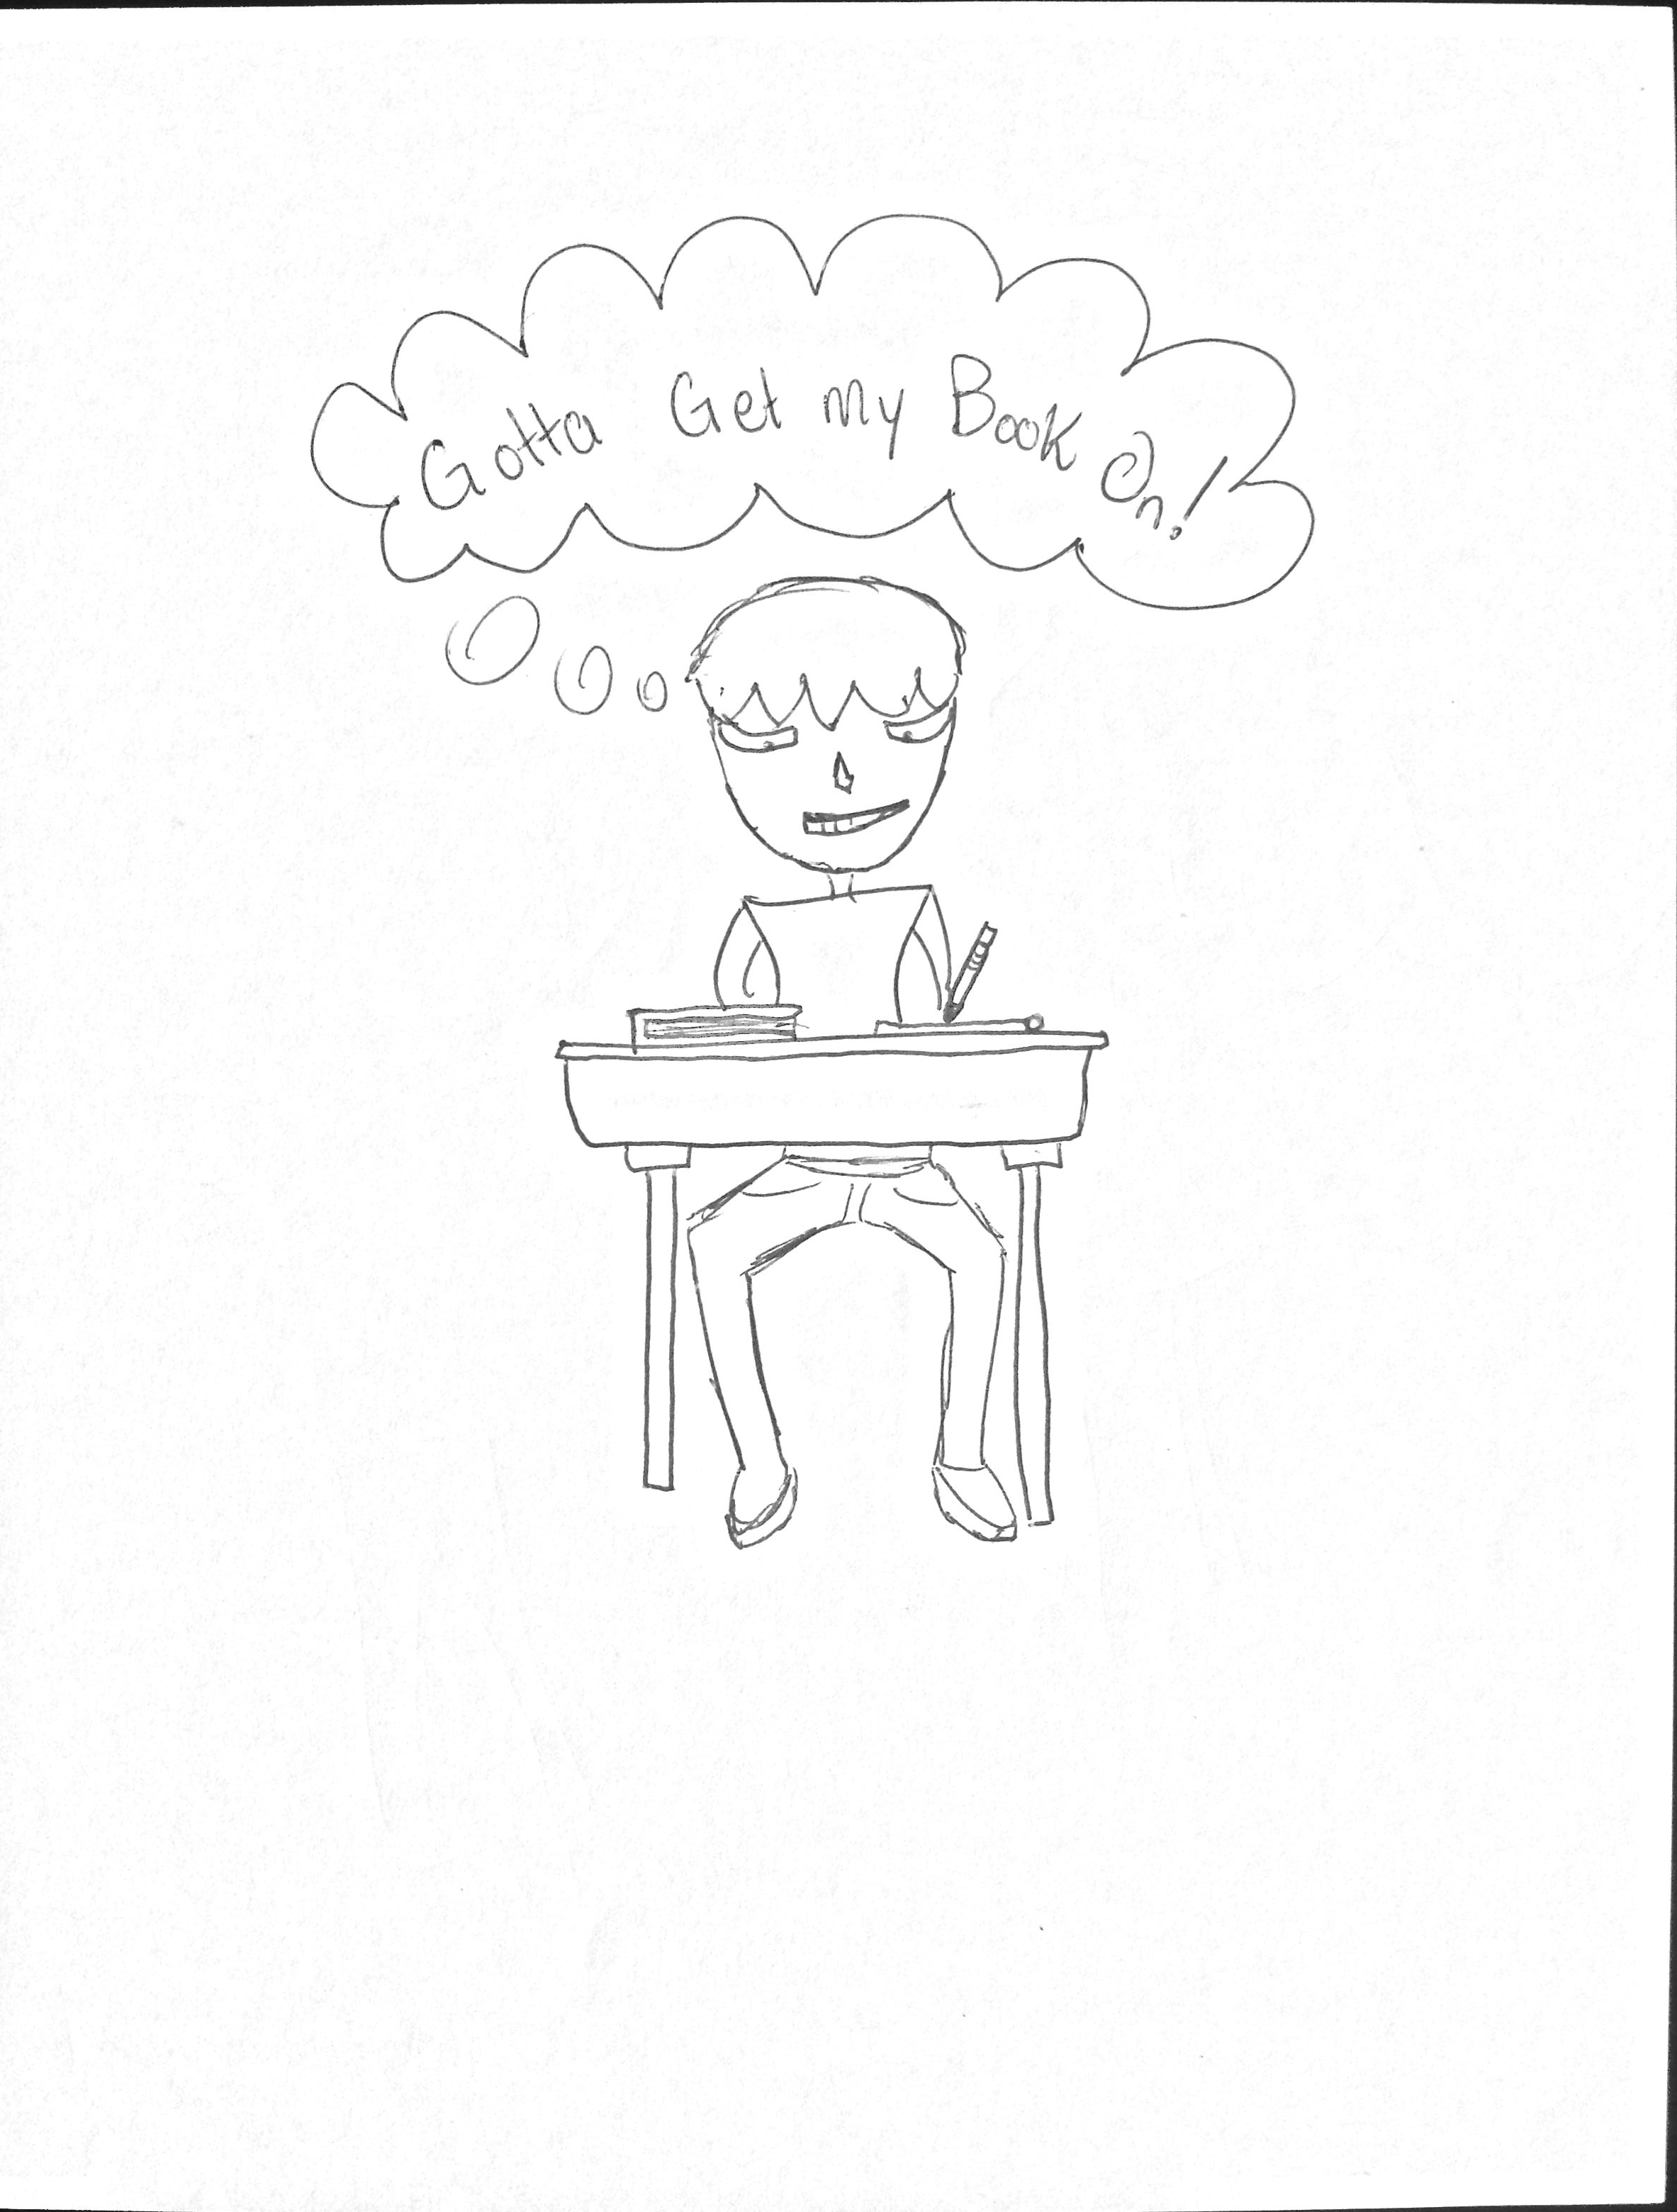 Gotta Get my Book On!